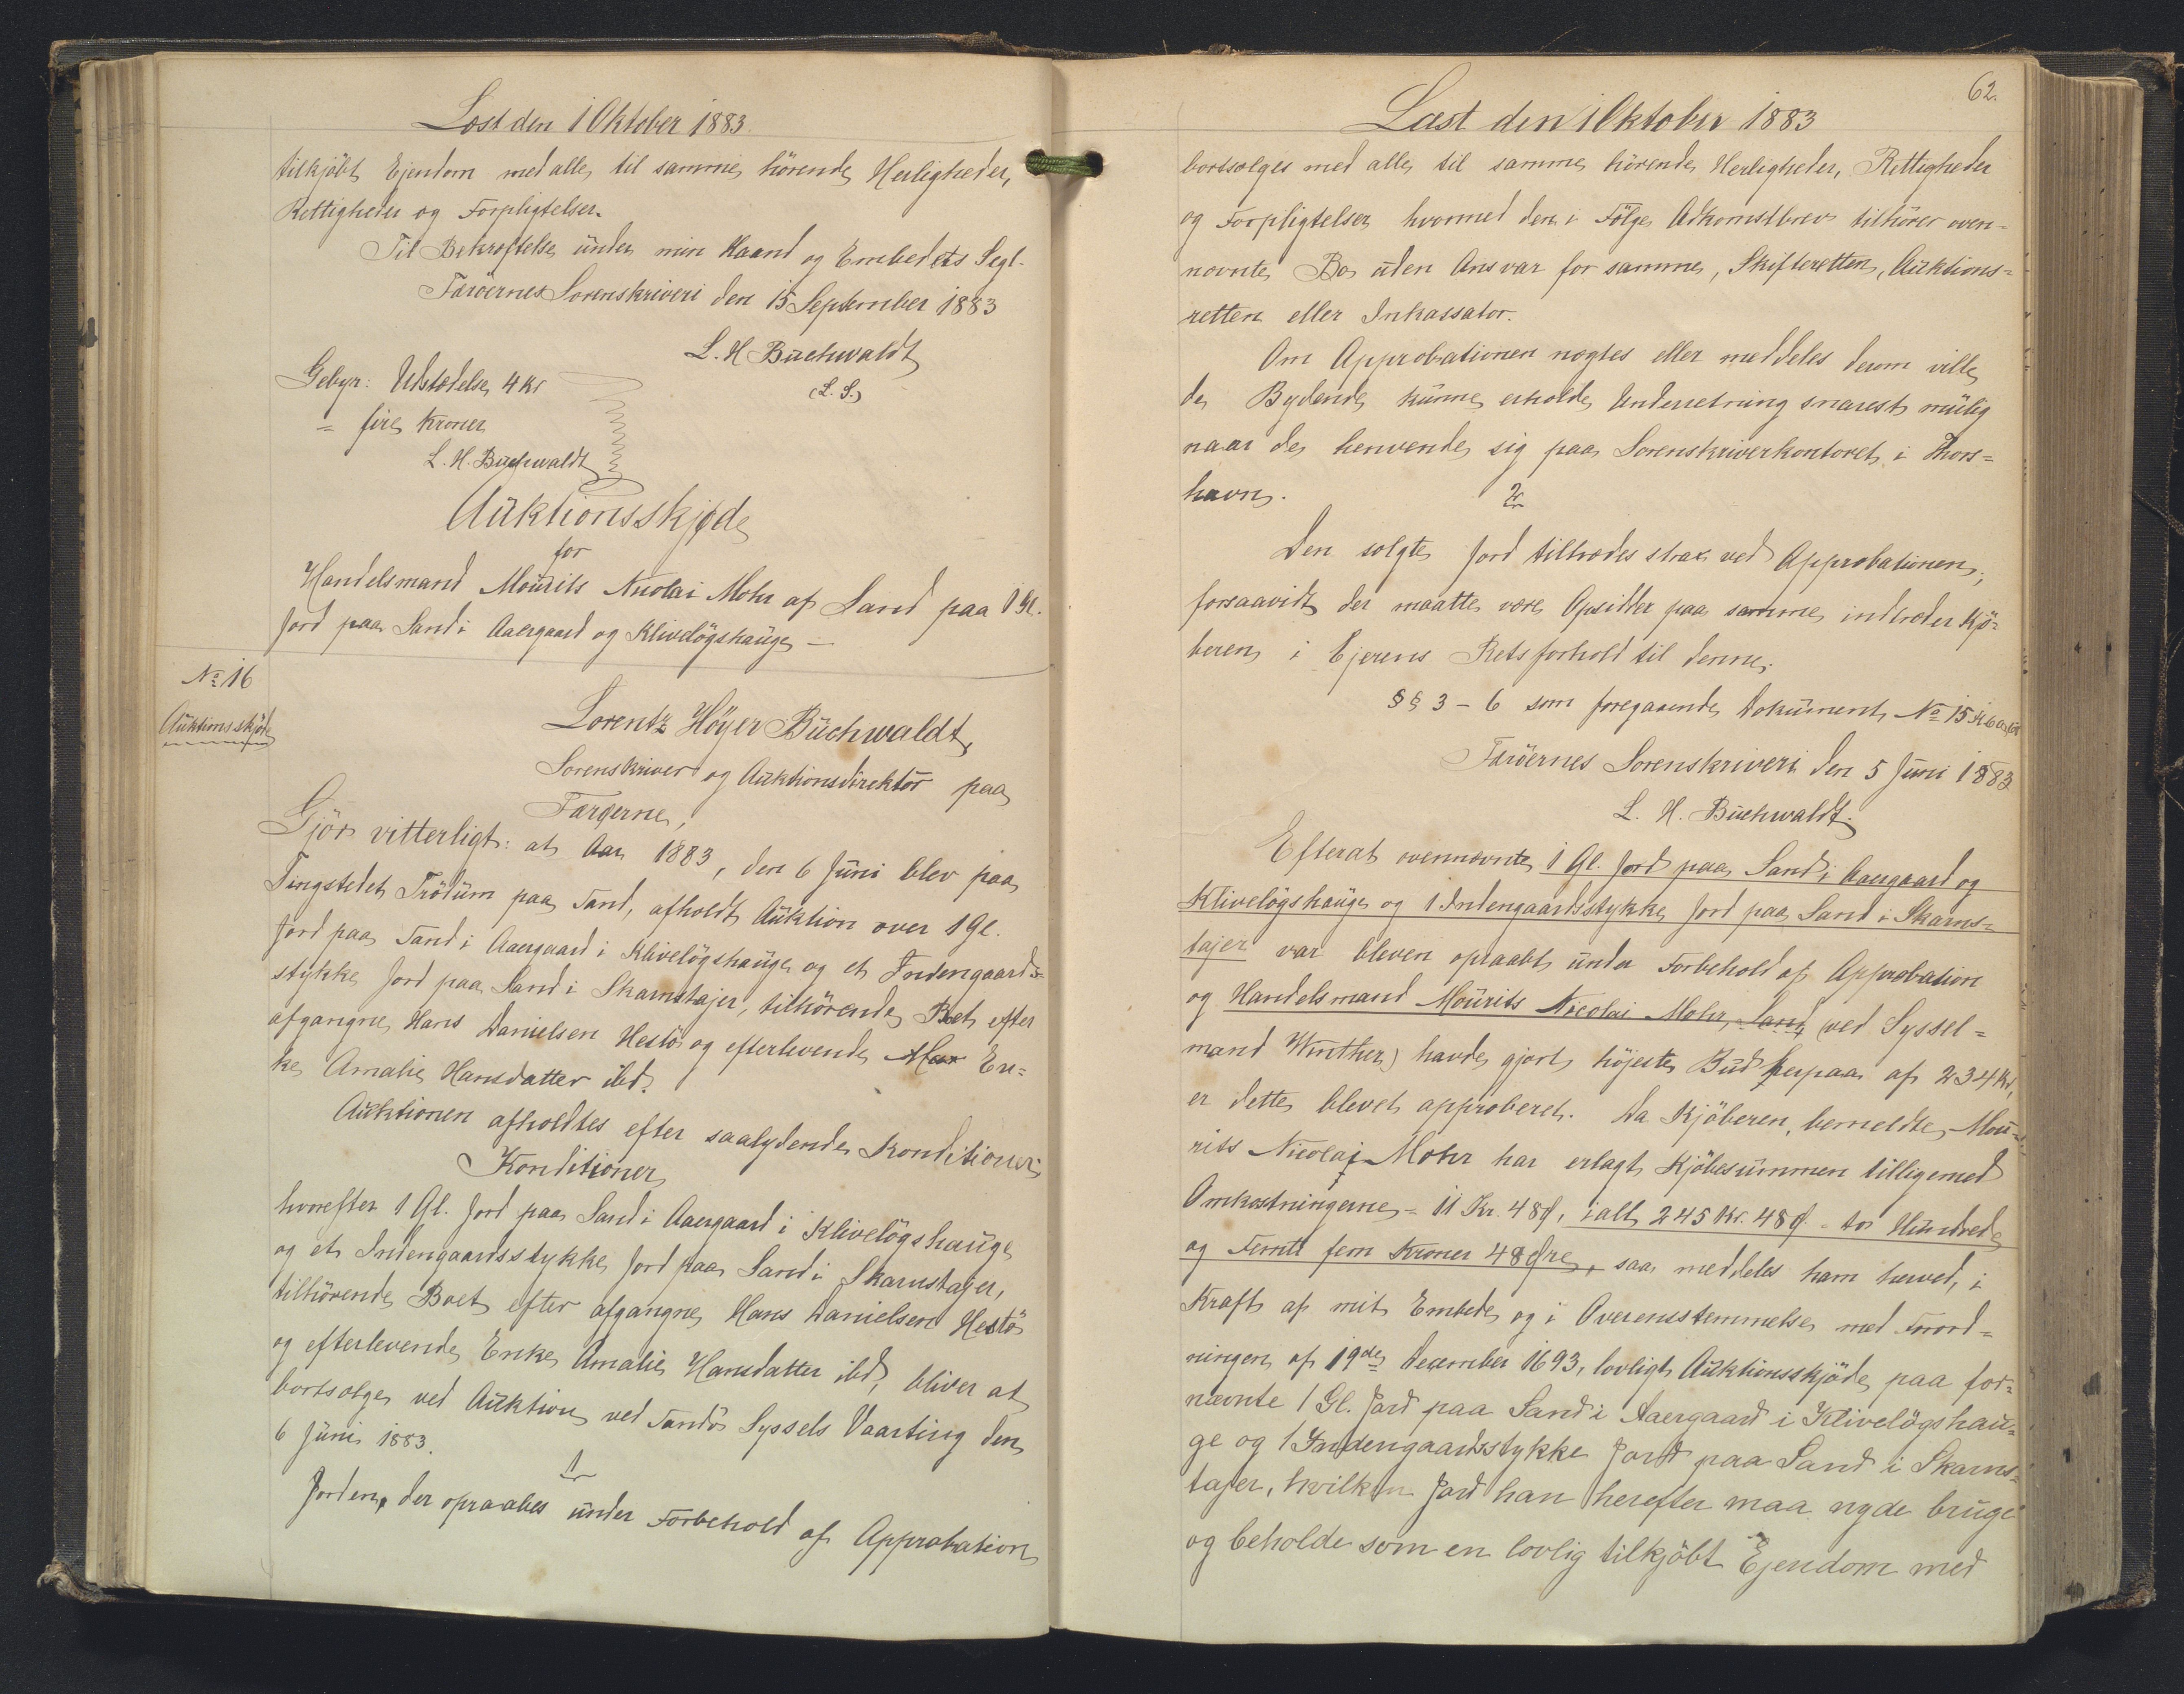 Læst den 1 Oktober 1883.
tilkjöbt Ejendom med alle til samme hörende Herligheder,
Rettigheder og Forpligtelser.
Til Bekræftelse under min Haand og Embedets Segl.
Færöernes Sorenskriveri den 15 September 1883
L. H. Buchwaldt
(L. S.)
Gebyr: Udstædelse 4 Kr
= fire Kroner
L. H. Buchwaldt
Auktionsskjøde
for
Handelsmand Mourits Nicolai Mohr af Sand paa 1 Gl.
Jord paa Sand i Aaergaard og Kliveløgshauge –
No 16
Auktionsskjöde
Lorentz Höyer Buchwaldt,
Sorenskriver og Auktionsdirektör paa
Færøerne,
Gjör vitterligt: at Aar 1883, den 6 Juni blev paa
Tingstedet Tröðum paa Sand, afholdt Auktion over 1 Gl.
Jord paa Sand i Aaergaard i Klivelögshauge og et Indengaards-
stykke Jord paa Sand i Skarnstajer, tilhörende Boet efter
afgangne Hans Danielsen Hestö og efterlevende En=
ke Amalie Hansdatter ibd.
Auktionen afholdtes efter saalydende Konditioner:
Konditioner
hvorefter 1 Gl. Jord paa Sand i Aaergaard i Klivelögshauge
og et Indengaardsstykke Jord paa Sand i Skarnstajer,
tilhörende Boet efter afgangne Hans Danielsen Hestö
og efterlevende Enke Amalie Hansdatter ibd, bliver at
bortsælge ved Auktion ved Sandö Syssels Vaarting den
6 Juni 1883.
1
Jorden, der opraabes under Forbehold af Approbation
62.
Læst den 1 Oktober 1883
bortsælges med alle til samme hörende Herligheder, Rettigheder
og Forpligtelser hvormed den i Fölge Adkomstbrev tilhörer oven=
nævnte Bo uden Ansvar for samme, Skifteretten, Auktions=
retten eller Inkassator.
Om Approbationen nægtes eller meddeles derom ville
de Bydende kunne erholde Underretning snarest mulig
naar de henvende sig paa Sorenskriverkontoret i Thors=
havn.
2
Den solgte Jord tiltrædes strax ved Approbationen;
forsaavidt der maatte være Opsidder paa samme indtræder Kjö=
beren i Ejerens Retsforhold til denne.
§§ 3 – 6 som foregaaende Dokument No 15
Færöernes Sorenskriveri den 5 Juni 1883
L. H. Buchwaldt.
Efterat ovennævnte 1 Gl. Jord paa Sand i Aaergaard og
Klivelögshauge og 1 Indengaardsstykke Jord paa Sand i Skarns=
tajer var bleven opraabt under Forbehold af Approbation
og Handelsmand Mourits Nicolai Mohr, Sand (ved Syssel=
mand Winther) havde gjort höjeste Bud herpaa af 234 Kr,
er dette blevet approberet. Da Kjöberen, bemeldte Mou=
rits Nicolai Mohr har erlagt Kjöbesummen tilligemed
Omkostningerne = 11 Kr. 48 Ø, ialt 245 Kr. 48 Ø. = to Hundrede
og Femti fem Kroner 48 Øre, saa meddeles ham herved, i
Kraft af mit Embede og i Overensstemmelse med Forord=
ningen af 19de December 1693, lovligt Auktionsskjöde paa for=
nævnte 1 Gl. Jord paa Sand i Aaergaard i Klivelögshau=
ge og 1 Indengaardsstykke Jord paa Sand i Skarns=
tajer, hvilken Jord han herefter maa nyde bruge
og beholde som en lovlig tilkjöbt Ejendom med